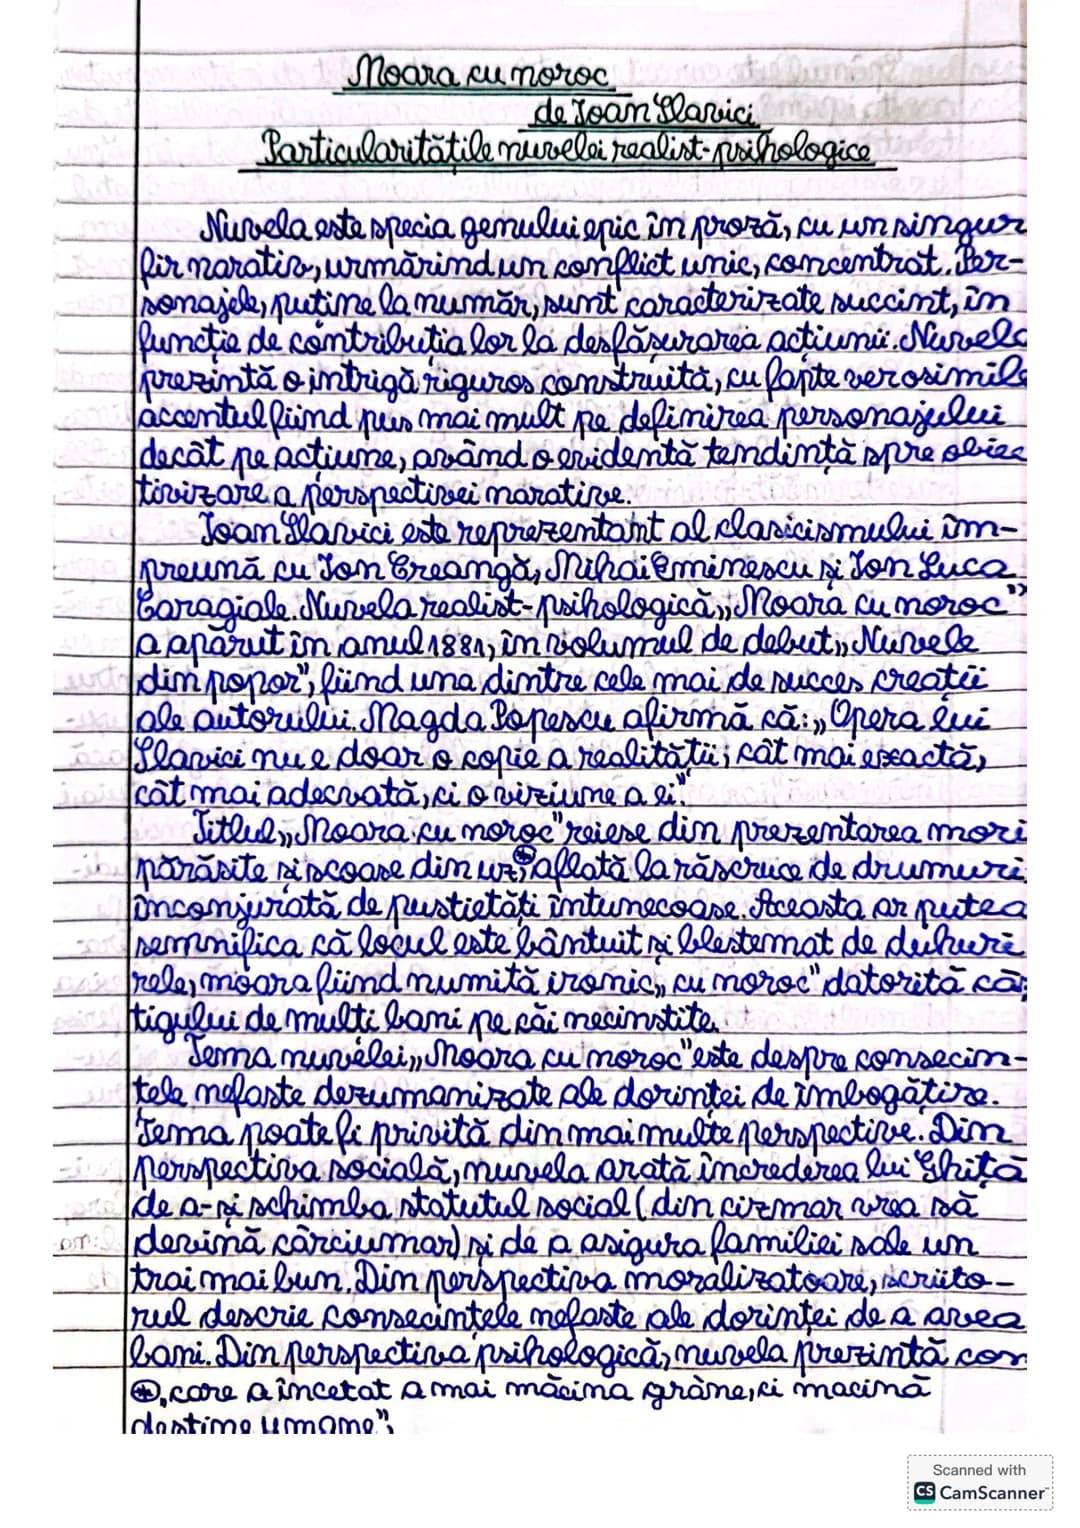 Moara cu noroc
de Ioan Slavici
Particularitățile nuvelei realist-psihologice
Nuvela este specia genului epic în proză, cu un singur
fir narativ, urmărind un conflict unic, concentrat. Per-
sonajele, puține la număr, sunt caracterizate succint, în
funcție de contribuția lor la desfășurarea acțiunii. Nuvela
prezintă o intrigă riguros construită, cu fapte verosimile
accentul fiind pus mai mult pe definirea personajului
decât pe acțiune, având o evidentă tendință spre obiec
tivizare a perspectivei narative.
Ioan Slavici este reprezentant al clasicismului îm-
preună cu Ion Creangă, Mihai Eminescu și Ion Luca
Caragiale. Nuvela realist-psihologică „Moara cu noroc"
a apărut în anul 1881, în volumul de debut „Nuvele
din popor", fiind una dintre cele mai de succes creații
ale autorului. Magda Popescu afirmă că: „Opera lui
Slavici nu e doar o copie a realității; cât mai exactă,
cât mai adecvată, ci o viziune a ei."
Titlul „Moara cu noroc" reiese din prezentarea mori
părăsite și scoase din uz, ⊕ aflată la răscruce de drumuri
înconjurată de pustietăți întunecoase. Aceasta ar putea
semnifica că locul este bântuit și blestemat de duhuri
rele, moara fiind numită ironic „cu noroc" datorită câș
tigului de mulți bani pe căi necinstite.
Tema nuvelei „Moara cu noroc" este despre consecin-
țele nefaste dezumanizate ale dorinței de îmbogățire.
Tema poate fi privită din mai multe perspective. Din
perspectiva socială, nuvela arată încrederea lui Ghiță
de a-și schimba statutul social (din cizmar vrea să
devină cârciumar) și de a asigura familiei sale un
trai mai bun. Din perspectiva moralizatoare, scriito-
rul descrie consecințele nefaste ale dorinței de a avea
bani. Din perspectiva psihologică, nuvela prezintă con
⊕, care a încetat a mai măcina grâne, ci macină
destine umane";
Scanned with
CS CamScanner